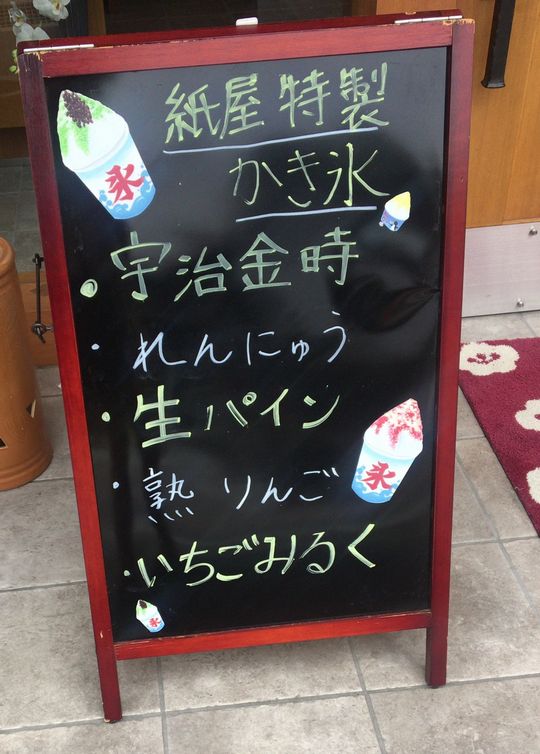 紙屋特製
かき氷
・宇治金時
・れんにゅう
・生パイン
・熟りんご
・いちごみるく
氷
氷